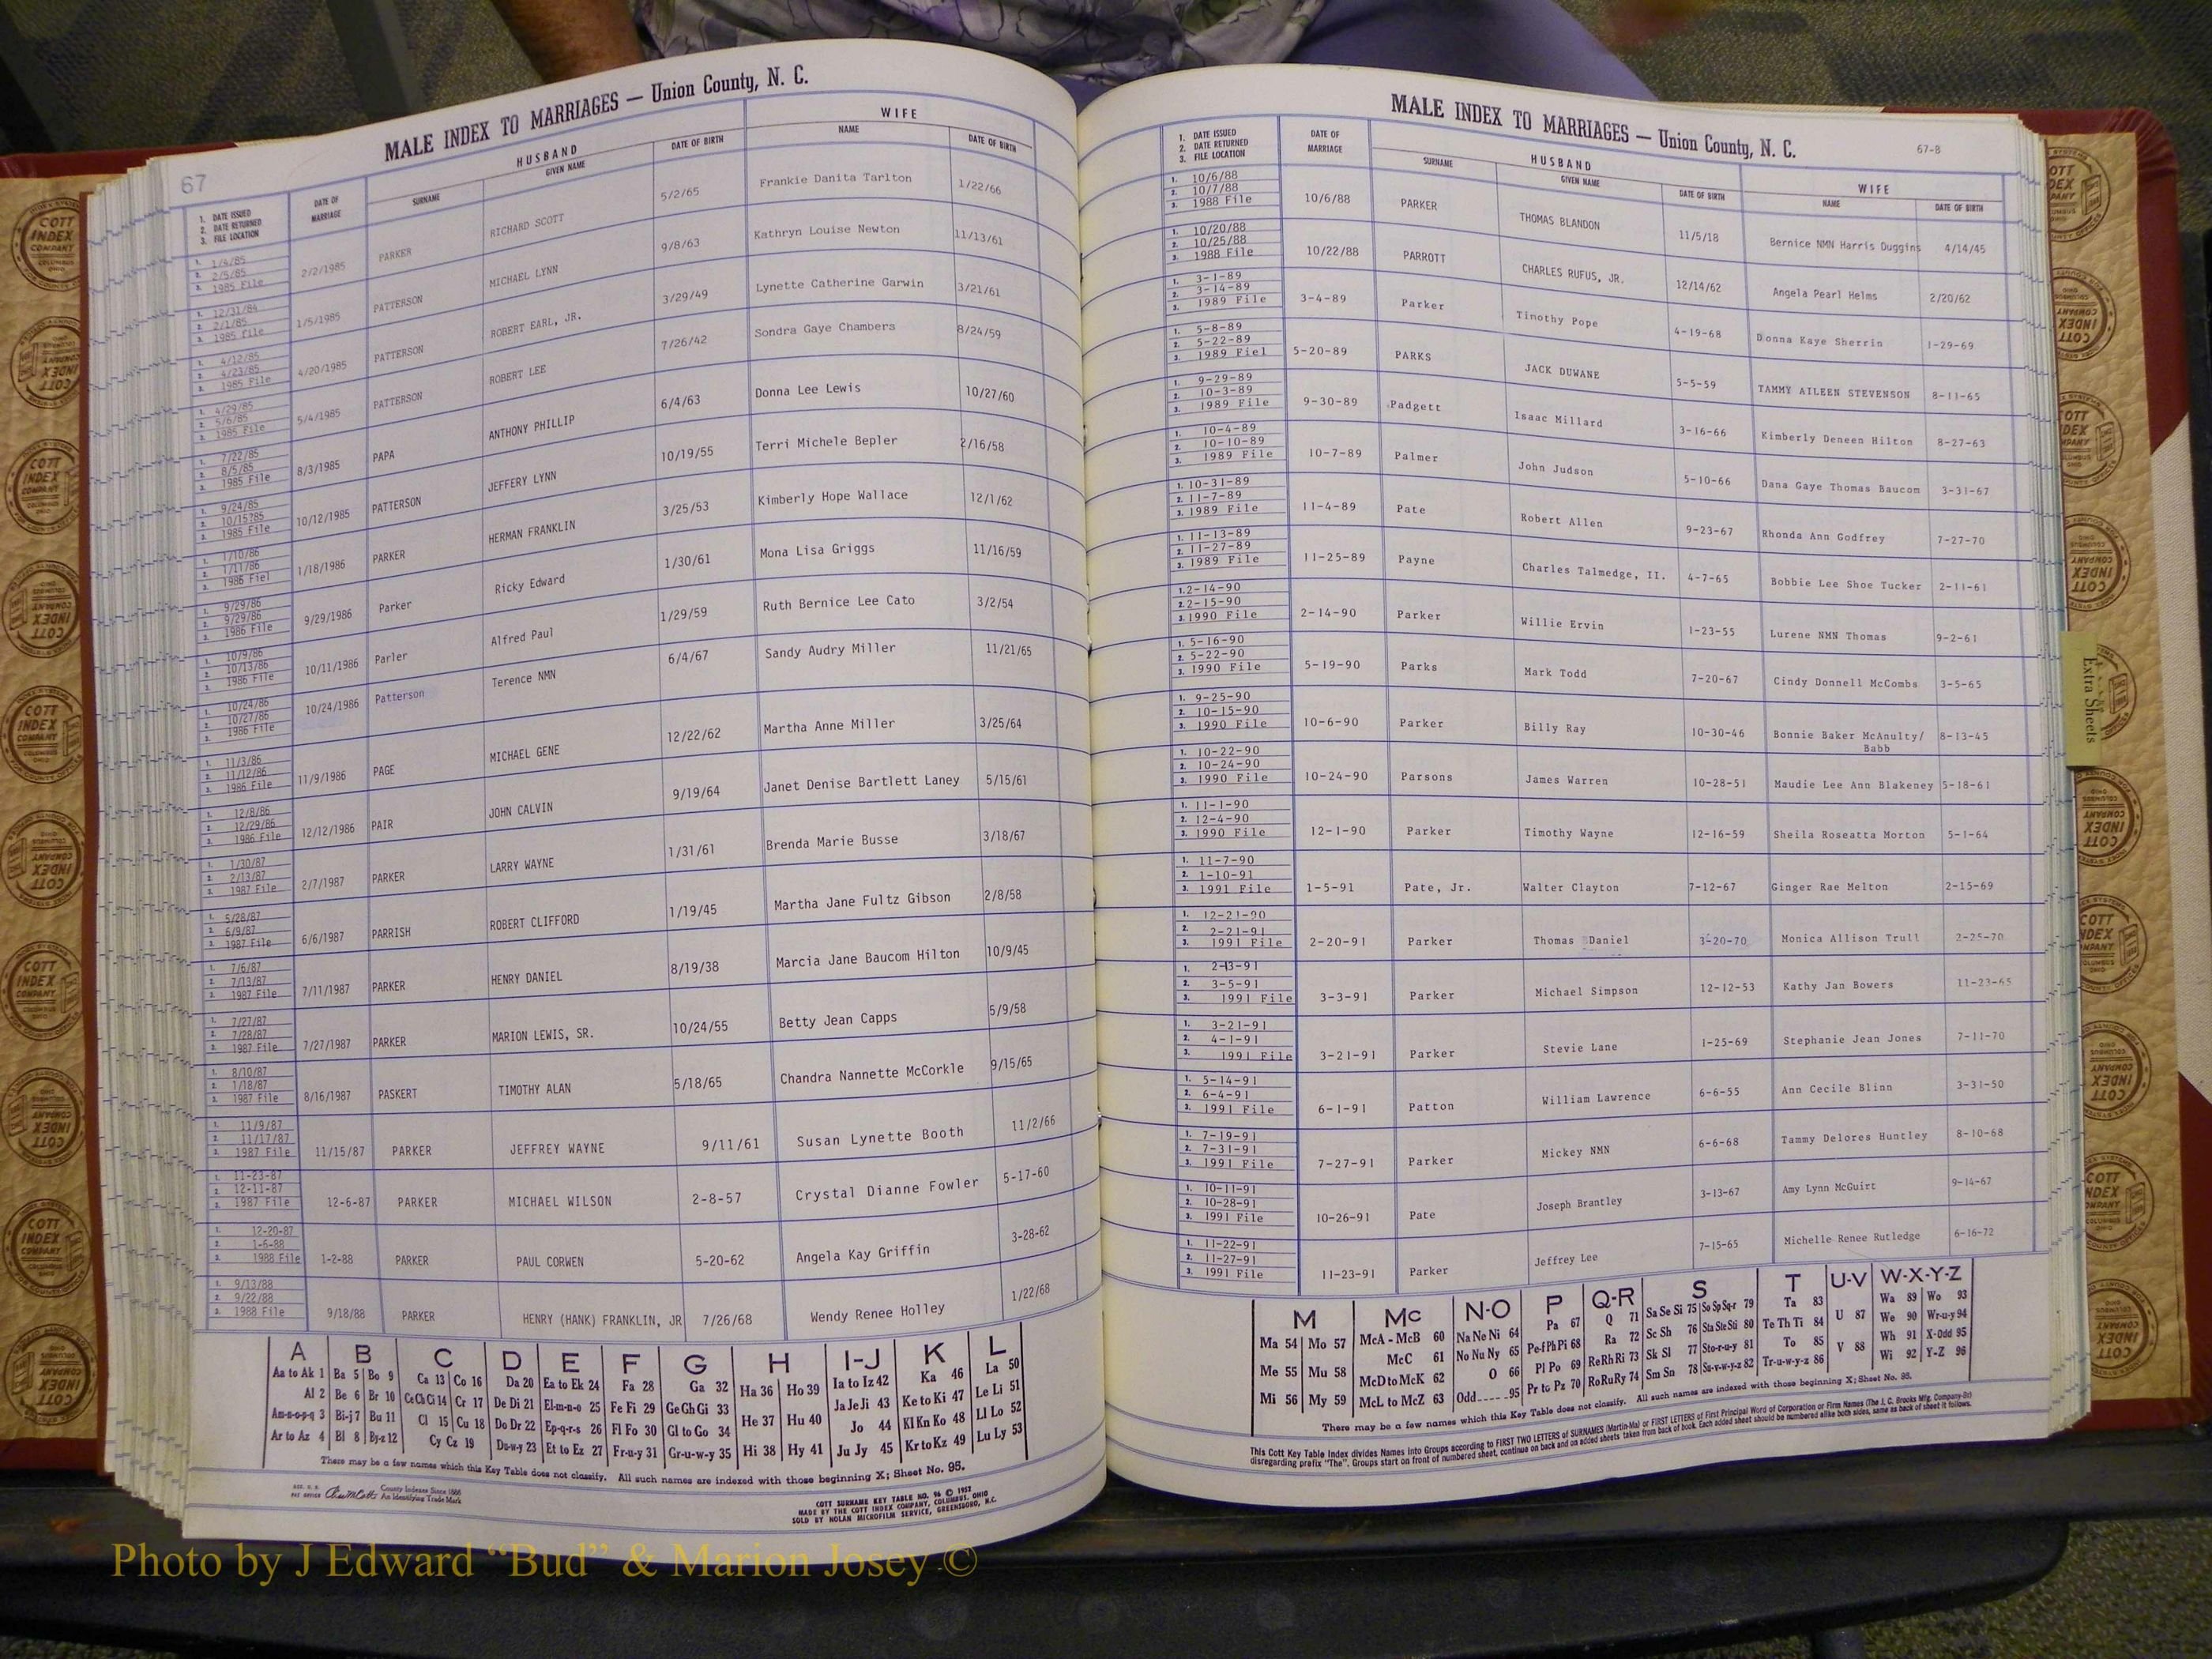 MALE INDEX TO MARRIAGES — Union County, N. C.
67
1. DATE ISSUED
2. DATE RETURNED
3. FILE LOCATION
DATE OF MARRIAGE
HUSBAND
SURNAME GIVEN NAME DATE OF BIRTH
WIFE
NAME DATE OF BIRTH
1. 1/4/85
2. 2/5/85
3. 1985 File
2/2/1985 PARKER RICHARD SCOTT 5/2/65 Frankie Danita Tarlton 1/22/66
1. 12/31/84
2. 2/1/85
3. 1985 File
1/5/1985 PATTERSON MICHAEL LYNN 9/8/63 Kathryn Louise Newton 11/13/61
1. 4/12/85
2. 4/23/85
3. 1985 File
4/20/1985 PATTERSON ROBERT EARL, JR. 3/29/49 Lynette Catherine Garwin 3/21/61
1. 4/29/85
2. 5/6/85
3. 1985 File
5/4/1985 PATTERSON ROBERT LEE 7/26/42 Sondra Gaye Chambers 8/24/59
1. 7/22/85
2. 8/5/85
3. 1985 File
8/3/1985 PAPA ANTHONY PHILLIP 6/4/63 Donna Lee Lewis 10/27/60
1. 9/24/85
2. 10/15?85
3. 1985 File
10/12/1985 PATTERSON JEFFERY LYNN 10/19/55 Terri Michele Bepler 2/16/58
1. 1/10/86
2. 1/11/86
3. 1986 Fiel
1/18/1986 PARKER HERMAN FRANKLIN 3/25/53 Kimberly Hope Wallace 12/1/62
1. 9/29/86
2. 9/29/86
3. 1986 File
9/29/1986 Parker Ricky Edward 1/30/61 Mona Lisa Griggs 11/16/59
1. 10/9/86
2. 10/13/86
3. 1986 File
10/11/1986 Parler Alfred Paul 1/29/59 Ruth Bernice Lee Cato 3/2/54
1. 10/24/86
2. 10/27/86
3. 1986 File
10/24/1986 Patterson Terence NMN 6/4/67 Sandy Audry Miller 11/21/65
1. 11/3/86
2. 11/12/86
3. 1986 File
11/9/1986 PAGE MICHAEL GENE 12/22/62 Martha Anne Miller 3/25/64
1. 12/8/86
2. 12/29/86
3. 1986 File
12/12/1986 PAIR JOHN CALVIN 9/19/64 Janet Denise Bartlett Laney 5/15/61
1. 1/30/87
2. 2/13/87
3. 1987 File
2/7/1987 PARKER LARRY WAYNE 1/31/61 Brenda Marie Busse 3/18/67
1. 5/28/87
2. 6/9/87
3. 1987 File
6/6/1987 PARRISH ROBERT CLIFFORD 1/19/45 Martha Jane Fultz Gibson 2/8/58
1. 7/6/87
2. 7/13/87
3. 1987 File
7/11/1987 PARKER HENRY DANIEL 8/19/38 Marcia Jane Baucom Hilton 10/9/45
1. 7/27/87
2. 7/28/87
3. 1987 File
7/27/1987 PARKER MARION LEWIS, SR. 10/24/55 Betty Jean Capps 5/9/58
1. 8/10/87
2. 1/18/87
3. 1987 File
8/16/1987 PASKERT TIMOTHY ALAN 5/18/65 Chandra Nannette McCorkle 9/15/65
1. 11/9/87
2. 11/17/87
3. 1987 File
11/15/87 PARKER JEFFREY WAYNE 9/11/61 Susan Lynette Booth 11/2/66
1. 11-23-87
2. 12-11-87
3. 1987 File
12-6-87 PARKER MICHAEL WILSON 2-8-57 Crystal Dianne Fowler 5-17-60
1. 12-20-87
2. 1-6-88
3. 1988 File
1-2-88 PARKER PAUL CORWEN 5-20-62 Angela Kay Griffin 3-28-62
1. 9/13/88
2. 9/22/88
3. 1988 File
9/18/88 PARKER HENRY (HANK) FRANKLIN, JR 7/26/68 Wendy Renee Holley 1/22/68
A B C D E F G H I-J K L
Aa to Ak 1 Ba 5 Bo 9 Ca 13 Co 16 Da 20 Ea to Ek 24 Fa 28 Ga 32 Ha 36 Ho 39 Ia to Iz 42 Ka 46 La 50
Al 2 Be 6 Br 10 Ce Ch Ci 14 Cr 17 De Di 21 El-m-n-o 25 Fe Fi 29 Ge Gh Gi 33 He 37 Hu 40 Ja Je Ji 43 Ke to Ki 47 Le Li 51
Am-n-o-p-q 3 Bi-j 7 Bu 11 Cl 15 Cu 18 Do Dr 22 Ep-q-r-s 26 Fl Fo 30 Gl to Go 34 Hi 38 Hy 41 Jo 44 Kl Kn Ko 48 Ll Lo 52
Ar to Az 4 Bl 8 By-z 12 Cy Cz 19 Du-w-y 23 Et to Ez 27 Fr-u-y 31 Gr-u-w-y 35 Ju Jy 45 Kr to Kz 49 Lu Ly 53
There may be a few names which this Key Table does not classify. All such names are indexed with those beginning X; Sheet No. 95.
County Indexes Since 1888
An Identifying Trade Mark
COTT SURNAME KEY TABLE NO. 96 © 1952
MADE BY THE COTT INDEX COMPANY, COLUMBUS, OHIO
SOLD BY NOLAN MICROFILM SERVICE, GREENSBORO, N.C.
MALE INDEX TO MARRIAGES — Union County, N. C.
67-B
1. DATE ISSUED
2. DATE RETURNED
3. FILE LOCATION
DATE OF MARRIAGE
HUSBAND
SURNAME GIVEN NAME DATE OF BIRTH
WIFE
NAME DATE OF BIRTH
1. 10/6/88
2. 10/7/88
3. 1988 File
10/6/88 PARKER THOMAS BLANDON 11/5/18 Bernice NMN Harris Duggins 4/14/45
1. 10/20/88
2. 10/25/88
3. 1988 File
10/22/88 PARROTT CHARLES RUFUS, JR. 12/14/62 Angela Pearl Helms 2/20/62
1. 3-1-89
2. 3-14-89
3. 1989 File
3-4-89 Parker Timothy Pope 4-19-68 Donna Kaye Sherrin 1-29-69
1. 5-8-89
2. 5-22-89
3. 1989 Fiel
5-20-89 PARKS JACK DUWANE 5-5-59 TAMMY AILEEN STEVENSON 8-11-65
1. 9-29-89
2. 10-3-89
3. 1989 File
9-30-89 Padgett Isaac Millard 3-16-66 Kimberly Deneen Hilton 8-27-63
1. 10-4-89
2. 10-10-89
3. 1989 File
10-7-89 Palmer John Judson 5-10-66 Dana Gaye Thomas Baucom 3-31-67
1. 10-31-89
2. 11-7-89
3. 1989 File
11-4-89 Pate Robert Allen 9-23-67 Rhonda Ann Godfrey 7-27-70
1. 11-13-89
2. 11-27-89
3. 1989 File
11-25-89 Payne Charles Talmedge, II. 4-7-65 Bobbie Lee Shoe Tucker 2-11-61
1. 2-14-90
2. 2-15-90
3. 1990 File
2-14-90 Parker Willie Ervin 1-23-55 Lurene NMN Thomas 9-2-61
1. 5-16-90
2. 5-22-90
3. 1990 File
5-19-90 Parks Mark Todd 7-20-67 Cindy Donnell McCombs 3-5-65
1. 9-25-90
2. 10-15-90
3. 1990 File
10-6-90 Parker Billy Ray 10-30-46 Bonnie Baker McAnulty/ 8-13-45
Babb
1. 10-22-90
2. 10-24-90
3. 1990 File
10-24-90 Parsons James Warren 10-28-51 Maudie Lee Ann Blakeney 5-18-61
1. 11-1-90
2. 12-4-90
3. 1990 File
12-1-90 Parker Timothy Wayne 12-16-59 Sheila Roseatta Morton 5-1-64
1. 11-7-90
2. 1-10-91
3. 1991 File
1-5-91 Pate, Jr. Walter Clayton 7-12-67 Ginger Rae Melton 2-15-69
1. 12-21-90
2. 2-21-91
3. 1991 File
2-20-91 Parker Thomas Daniel 3-20-70 Monica Allison Trull 2-25-70
1. 2-13-91
2. 3-5-91
3. 1991 File
3-3-91 Parker Michael Simpson 12-12-53 Kathy Jan Bowers 11-23-65
1. 3-21-91
2. 4-1-91
3. 1991 File
3-21-91 Parker Stevie Lane 1-25-69 Stephanie Jean Jones 7-11-70
1. 5-14-91
2. 6-4-91
3. 1991 File
6-1-91 Patton William Lawrence 6-6-55 Ann Cecile Blinn 3-31-50
1. 7-19-91
2. 7-31-91
3. 1991 File
7-27-91 Parker Mickey NMN 6-6-68 Tammy Delores Huntley 8-10-68
1. 10-11-91
2. 10-28-91
3. 1991 File
10-26-91 Pate Joseph Brantley 3-13-67 Amy Lynn McGuirt 9-14-67
1. 11-22-91
2. 11-27-91
3. 1991 File
11-23-91 Parker Jeffrey Lee 7-15-65 Michelle Renee Rutledge 6-16-72
M Mc N-O P Q-R S T U-V W-X-Y-Z
Ma 54 Mo 57 McA - McB 60 Na Ne Ni 64 Pa 67 Q 71 Sa Se Si 75 So Sp Sq-r 79 Ta 83 U 87 Wa 89 Wo 93
Me 55 Mu 58 McC 61 No Nu Ny 65 Pe-f Ph Pi 68 Ra 72 Sc Sh 76 Sta Ste Sti 80 Te Th Ti 84 V 88 We 90 Wr-u-y 94
Mi 56 My 59 McD to McK 62 O 66 Pl Po 69 Re Rh Ri 73 Sk Sl 77 Sto-r-u-y 81 To 85 Wh 91 X-Odd 95
McL to McZ 63 Odd 95 Pr to Pz 70 Ro Ru Ry 74 Sm Sn 78 Su-v-w-y-z 82 Tr-u-w-y-z 86 Wi 92 Y-Z 96
There may be a few names which this Key Table does not classify. All such names are indexed with those beginning X; Sheet No. 95.
This Cott Key Table Index divides Names into Groups according to FIRST TWO LETTERS of SURNAMES (Martin-Ma) or FIRST LETTERS of First Principal Word of Corporation or Firm Names (The J. C. Brooks Mfg. Company-Br)
disregarding prefix "The". Groups start on front of numbered sheet, continue on back and on added sheets taken from back of book. Each added sheet should be numbered alike both sides, same as back of sheet it follows.
Extra Sheets
COTT
INDEX
COMPANY
Photo by J Edward “Bud” & Marion Josey ©